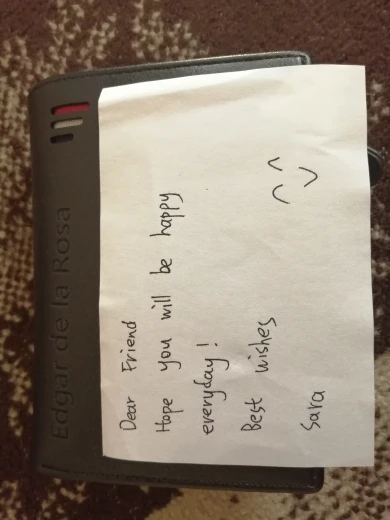 Edgar de la Rosa
Dear Friend
Hope you will be happy
everyday!
Best wishes
Sara